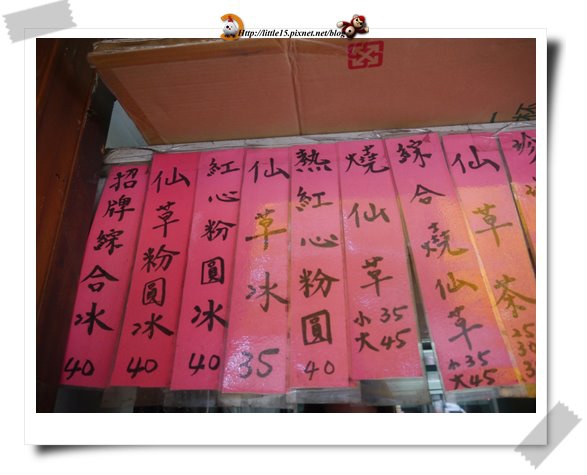 Http://little15.pixnet.net/blog
招牌綜合冰
40
仙草粉圓冰
40
紅心粉圓冰
40
仙草冰
35
熱紅心粉圓
40
燒仙草
小35
大45
綜合燒仙草
小35
大45
仙草茶
25
珍